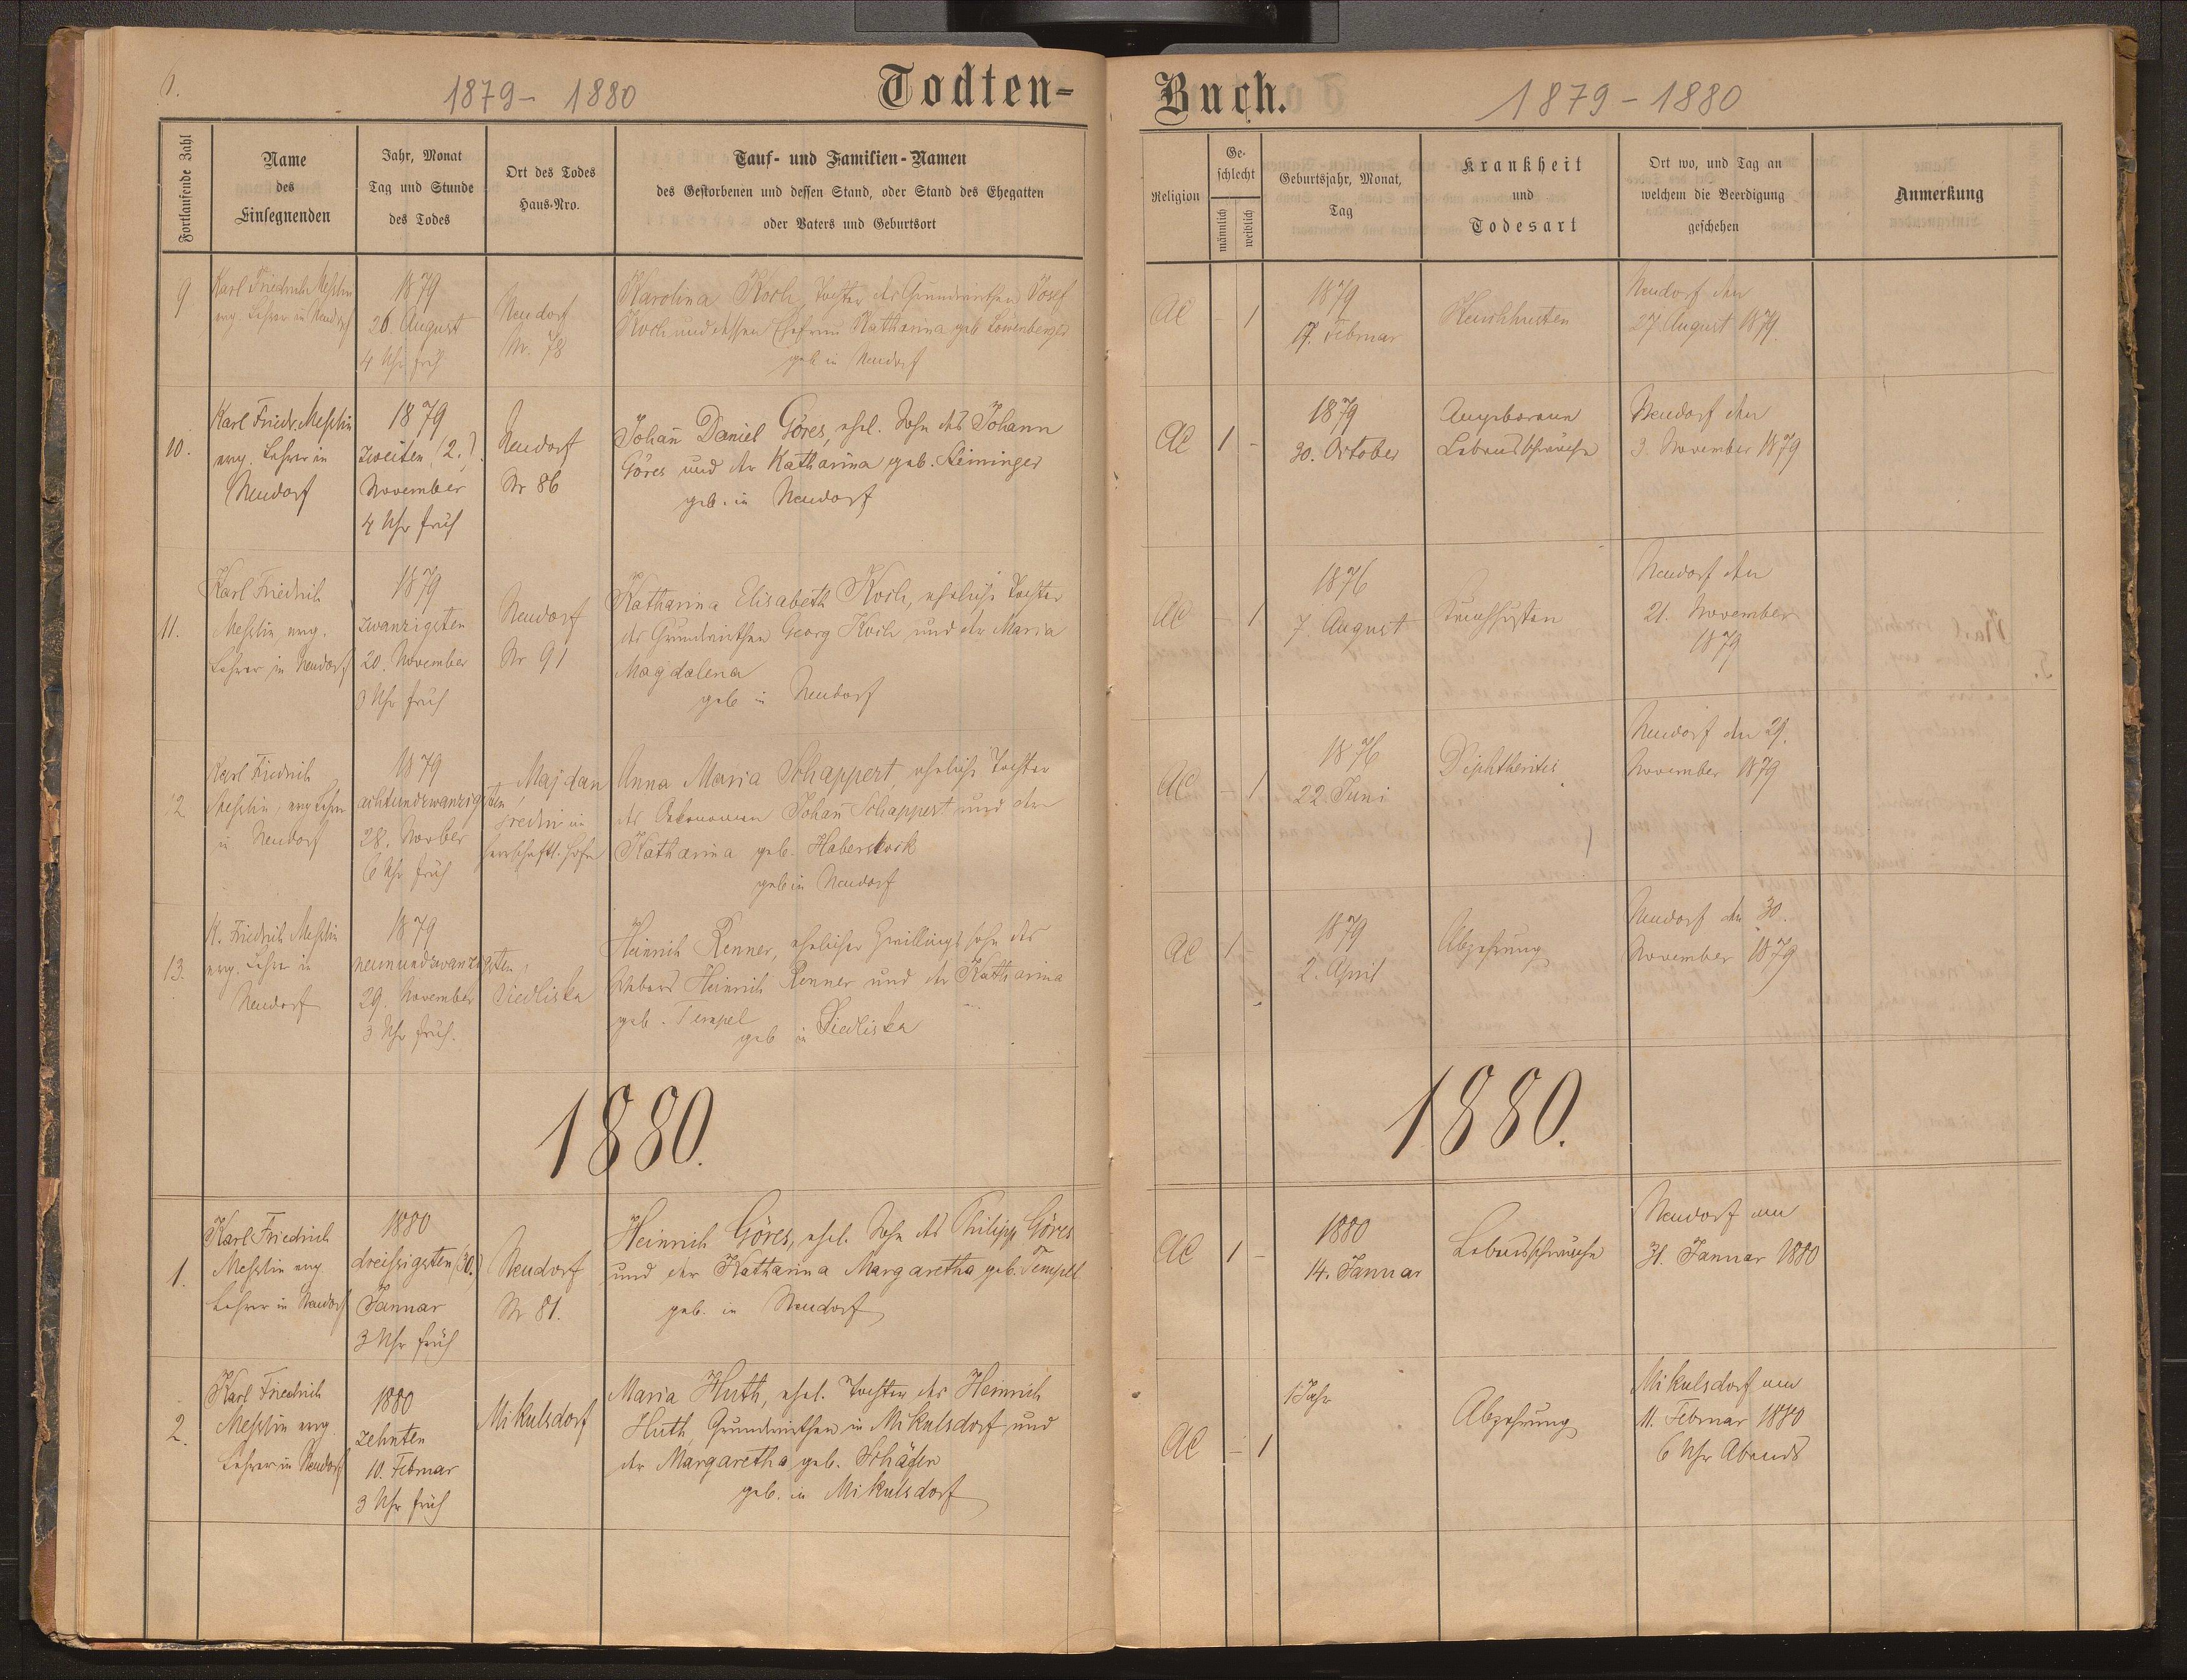 6.
1879 - 1880
Todten-
Fortlaufende Zahl
Name
des
Einsegnenden
Jahr, Monat
Tag und Stunde
des Todes
Ort des Todes
Haus-Nro.
Tauf- und Familien-Namen
des Gestorbenen und dessen Stand, oder Stand des Ehegatten
oder Vaters und Geburtsort
9
Karl Friedrich Meßlin
evg. Lehrer in Neudorf
1879
26. August
4 Uhr früh
Neudorf
Nr. 78
Karolina Koch, Tochter des Grundwirthen Josef
Koch und dessen Ehefrau Katharina geb Löwenberger
geb in Neudorf
10.
Karl Friedr. Meßlin
evg. Lehrer in
Neudorf
1879
zweiten (2.)
November
4 Uhr früh
Neudorf
Nr 86
Johañ Daniel Göres, ehel. Sohn des Johann
Göres und der Katharina geb. Steininger
geb. in Neudorf
11.
Karl Friedrich
Meßlin, evg.
Lehrer in Neudorf
1879
zwanzigsten
20. November
Uhr früh
Neudorf
Nr 91
Katharina Elisabeth Koch, eheliche Tochter
des Grundwirthen Georg Koch und der Maria
Magdalena
geb in Neudorf
12
Karl Friedrich
Meßlin, evg Lehrer
in Neudorf
1879
achtundzwanzigsten
28. Novber
6 Uhr früh
Majdan
sredni im
herrschaftl. Hofe
Anna Maria Schappert eheliche Tochter
des Oekonomen Johañ Schappert und der
Katharina geb. Haberstock
geb in Neudorf
13.
K. Friedrich Meßlin
evg. Lehrer in
Neudorf
1879
neunundzwanzigsten,
29. November
3 Uhr früh.
Siedliska
Heinrich Renner, ehelicher Zwillingssohn des
Webers Heinrich Renner und der Katharina
geb. Tempel
geb in Siedliska
1880.
1.
Karl Friedrich
Meßlin evg
Lehrer in Neudorf
1880
dreißigsten (30.)
Januar
3 Uhr früh
Neudorf
Nr 81.
Heinrich Göres, ehel. Sohn des Philipp Göres
und der Katharina Margaretha geb. Tempel
geb. in Neudorf
2.
Karl Friedrich
Meßlin evg.
Lehrer in Neudorf
1880
zehnten
10. Februar
3 Uhr früh
Mikulsdorf
Maria Huth, ehel. Tochter des Heinrich
Huth, Grundwirthen in Mikulsdorf und
der Margaretha geb. Schäfer
geb. in Mikulsdorf
Buch.
1879 - 1880
Religion
Ge-
schlecht
männlich
weiblich
Geburtsjahr, Monat,
Tag
Krankheit
und
Todesart
Ort wo, und Tag an
welchem die Beerdigung
geschehen
Anmerkung
AC - 1
1879
17. Februar
Keuchhusten
Neudorf den
27 August 1879.
AC 1 -
1879
30. October
Angeborene
Lebensschwäche
Neudorf den
3. November 1879
AC - 1
1876
7. August
Keuchhusten
Neudorf den
21. November
1879
AC - 1
1876
22 Juni
Diphtheritis
Neudorf den 29.
November 1879
AC 1 -
1879
2. April
Abzehrung
Neudorf den 30.
November 1879
1880.
AC 1 -
1880
14. Januar
Lebensschwäche
Neudorf am
31. Januar 1880
AC - 1
1 Jahr
Abzehrung
Mikulsdorf am
11. Februar 1880
6 Uhr Abends